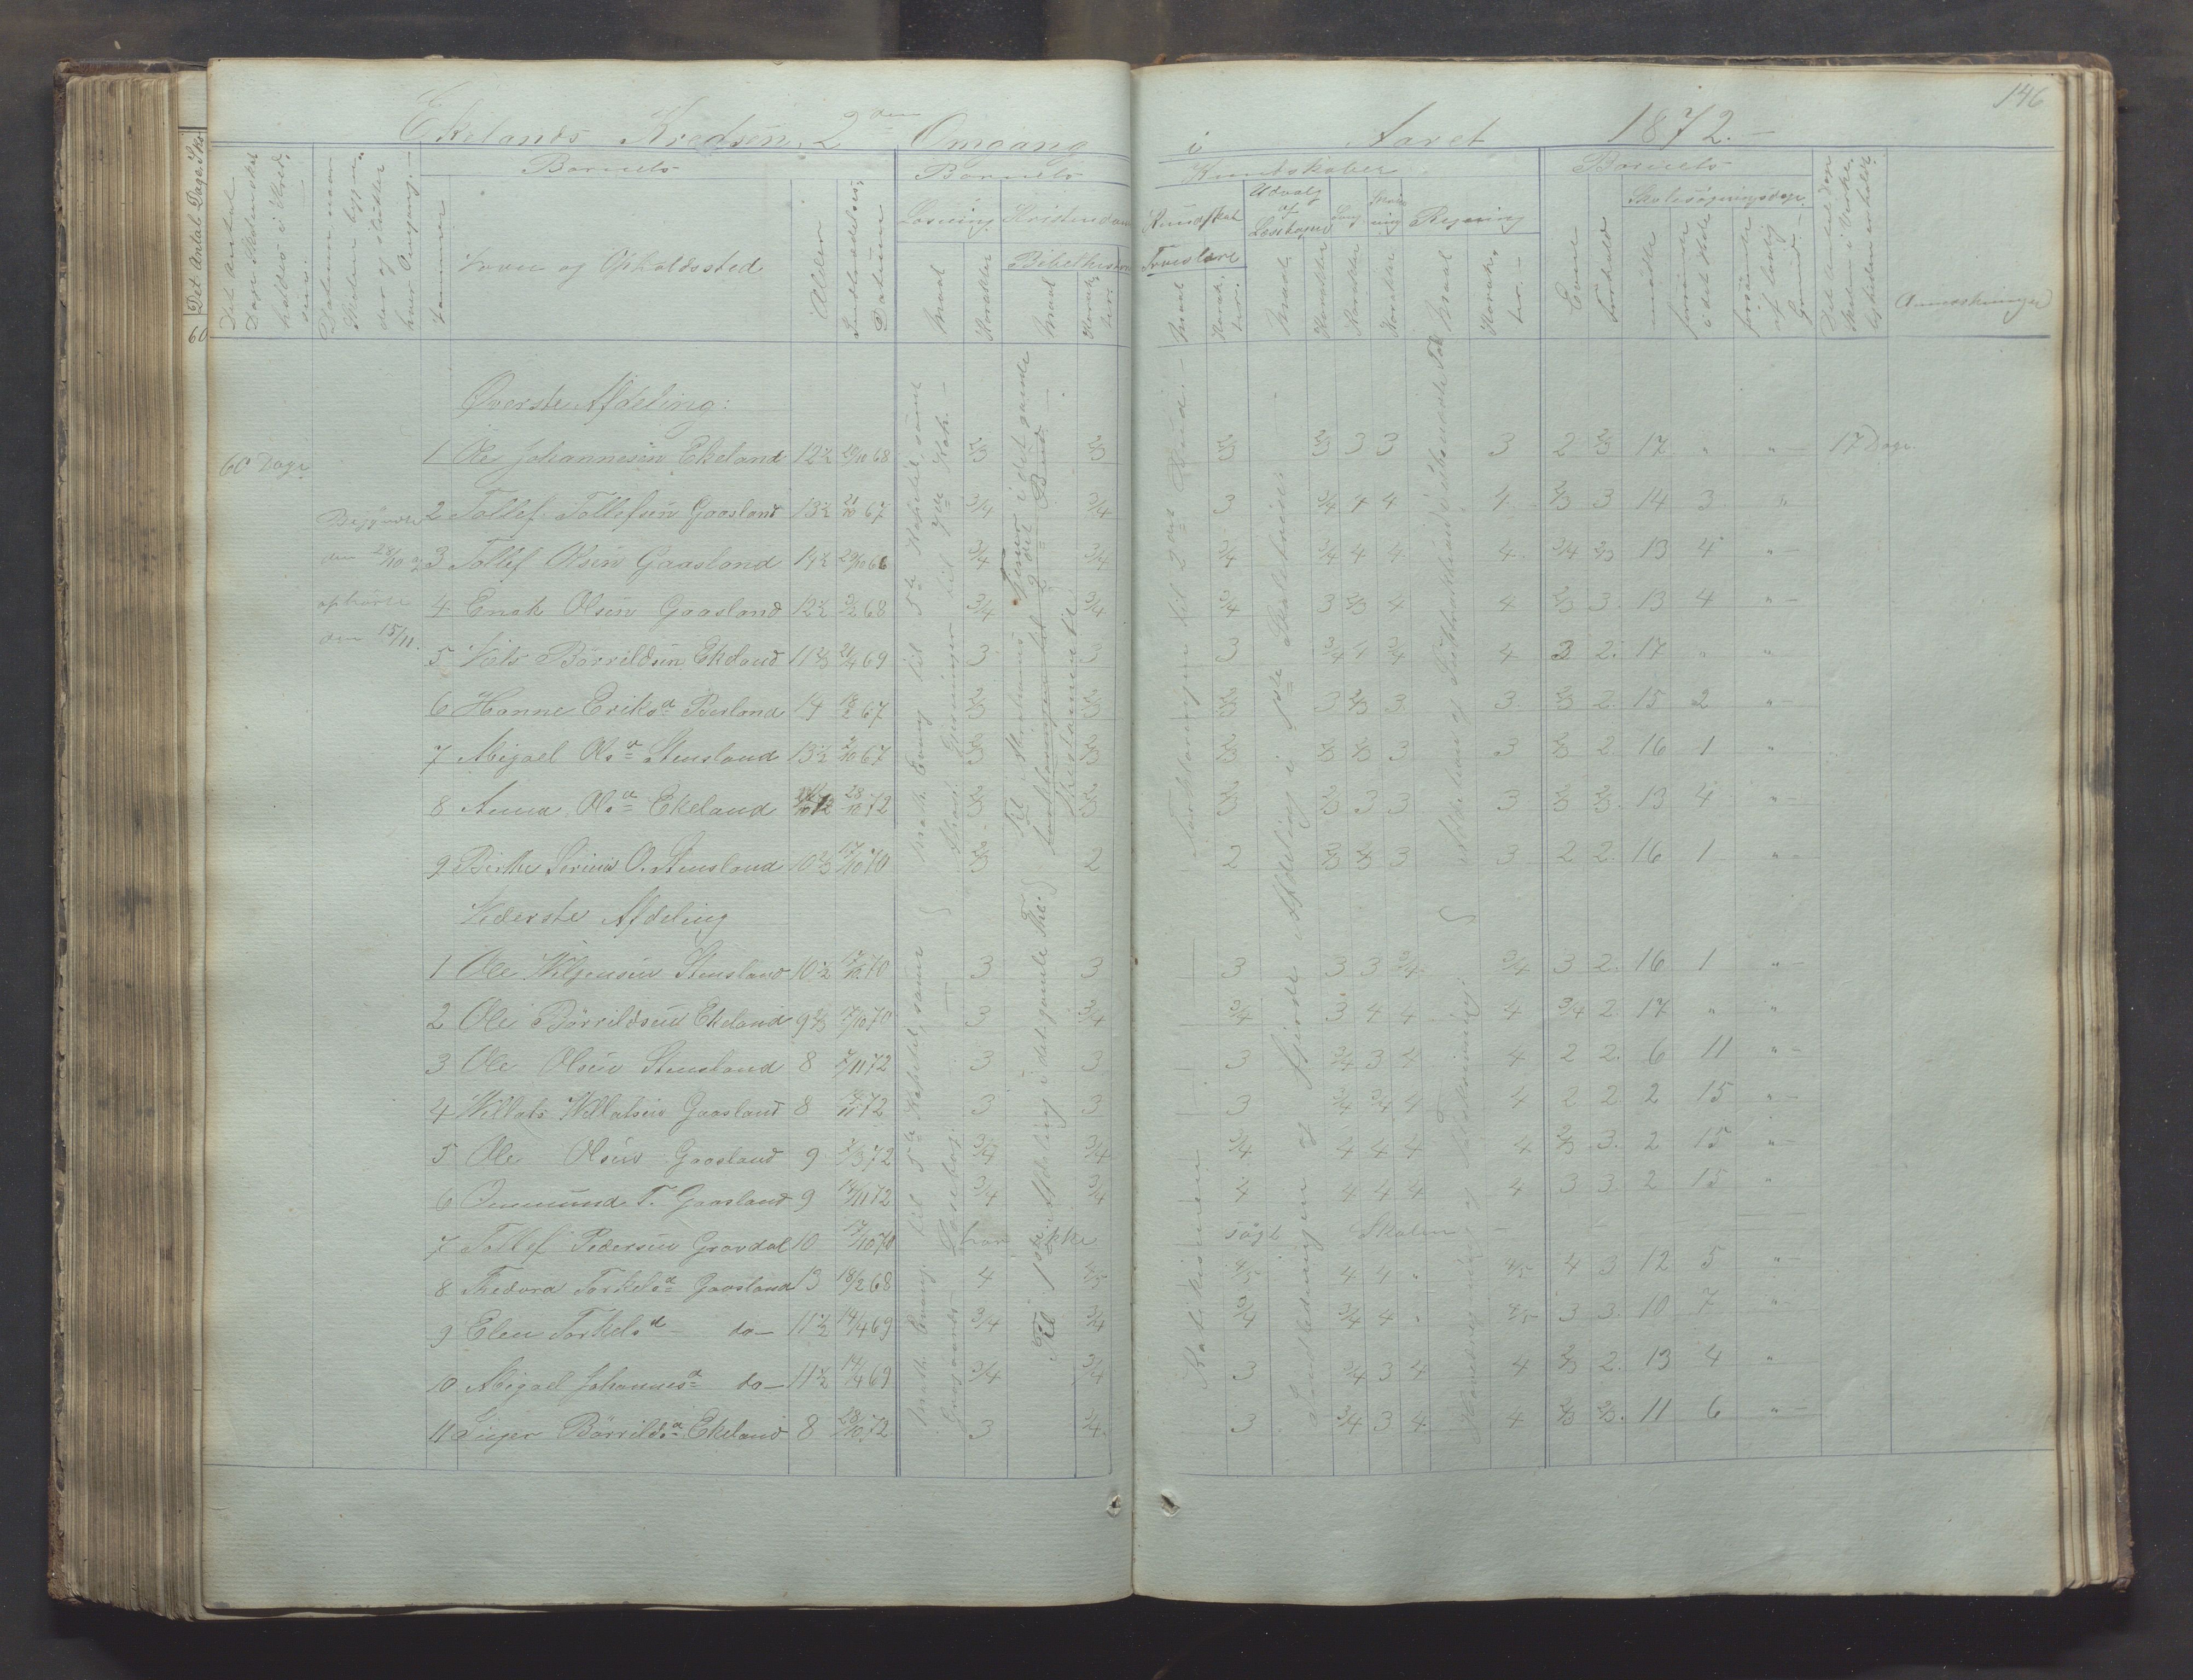 146
Ekelands Kredsen, 2den Omgang i Aaret 1872.
Det Antal Dage Sko
60
Det Antal Dage Skolen skal holdes i Kredsen.
Datum naar Skolen begynder og slutter hver Omgang.
Nummer
Barnets
Navn og Opholdssted
Alder
Indtrædelses Datum
Barnets Kundskaber
Læsning
Maal
Karakter
Kristendom Kundskab
Maal
Karakter
Troeslære
Maal
Karakter
Udvalg af Læsebogen
Maal
Karakter
Sang
Karakter
Skrivning
Karakter
Regning
Maal
Karakter
Barnets
Evne
Forhold
Skolesøgningsdage
mødte
forsømte i det Hele
forsømte af lovlig Grund
Det Antal Dage Skolen i Virkeligheden er holdt
Anmærkninger
60 Dage
Begyndte
den 28/10 72
ophørte
den 15/11.
Øverste Afdeling:
1 Ole Johannesen Ekeland 12 1/2 29/10 68 2/3 2/3 2/3 2/3 3 3 3 2 2/3 17 " " 17 Dage.
2 Tollef Tollefsen Gaasland 13 1/2 21/10 67 3/4 3/4 3 3/4 4 4 4 2/3 3 14 3 "
3 Tollef Olsen Gaasland 14 1/2 29/10 66 3/4 3/4 3/4 3/4 4 4 4 3/4 2/3 13 4 "
4 Enok Olsen Gaasland 12 1/2 3/2 68 3/4 3/4 3/4 3 2/3 4 4 2/3 3 13 4 "
5 Niels Børrildsen Ekeland 11 2/3 21/4 69 3 3 3 3/4 4 3/4 4 3 2 17 " "
6 Hanne Eriksd Birland 14 18/2 67 2/3 2/3 2/3 3 2/3 3 3 2/3 2 15 2 "
7 Abigael Olsd Stensland 13 1/2 2/10 67 2/3 2/3 2/3 2/3 2/3 3 3 2/3 2 16 1 "
8 Anna Olsd Ekeland 28/10 72 2/3 2/3 2/3 2/3 3 3 3 2/3 2/3 13 4 "
9 Birthe Serine O. Stensland 10 2/3 17/10 70 2/3 2 2 2/3 2/3 3 3 2 2 16 1 "
Nederste Afdeling
1 Ole Nilsensen Stensland 10 1/2 17/10 70 3 3 3 3 3 3/4 3/4 3 2 16 1 "
2 Ole Børrildsen Ekeland 9 2/3 17/10 70 3 3/4 3/4 3 4 4 4 3/4 2 17 " "
3 Ole Olsen Stensland 8 7/11 72 3 3 3 3/4 3 4 4 2 2 6 11 "
4 Villats Villatsen Gaasland 8 72 3 3 3 3/4 3/4 4 4 2 2 2 15 "
5 Ole Olsen Gaasland 9 72 3/4 3/4 3/4 4 4 4 4 2/3 3 2 15 "
6 Ommund T. Gaasland 9 14/11 72 3/4 3/4 4 4 4 4 4 3 3 2 15 "
7 Tollef Pedersen Gravdal 10 17/10 70 har ikke søgt Skolen
8 Thedora Torkelsd Gaasland 13 18/2 68 4 4/5 4/5 4 4 " 4/5 4 3 12 5 "
9 Elen Torkelsd do 11 1/2 14/4 69 3/4 3/4 3/4 3/4 4 " 4/5 3 3 10 7 "
10 Abigael Johannesd do 11 1/2 14/4 69 3/4 3/4 3 3/4 3 4 4 2/3 2 13 4 "
11 Inger Børrildsd Ekeland 8 28/10 72 3 3/4 3 3/4 3 4 4 2/3 2/3 11 6 "